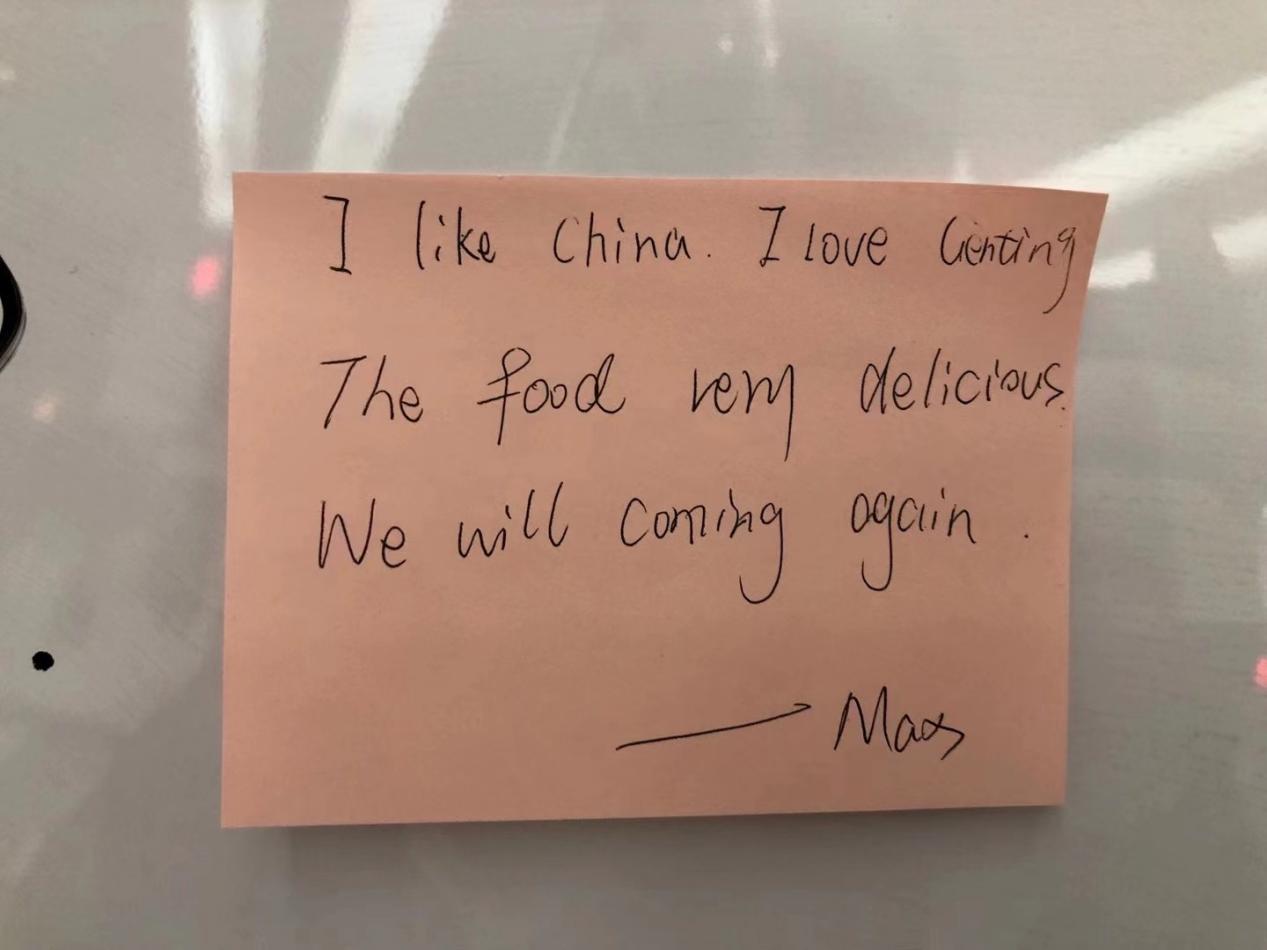 I like China. I love Genting
The food very delicious.
We will coming again.
→ Max